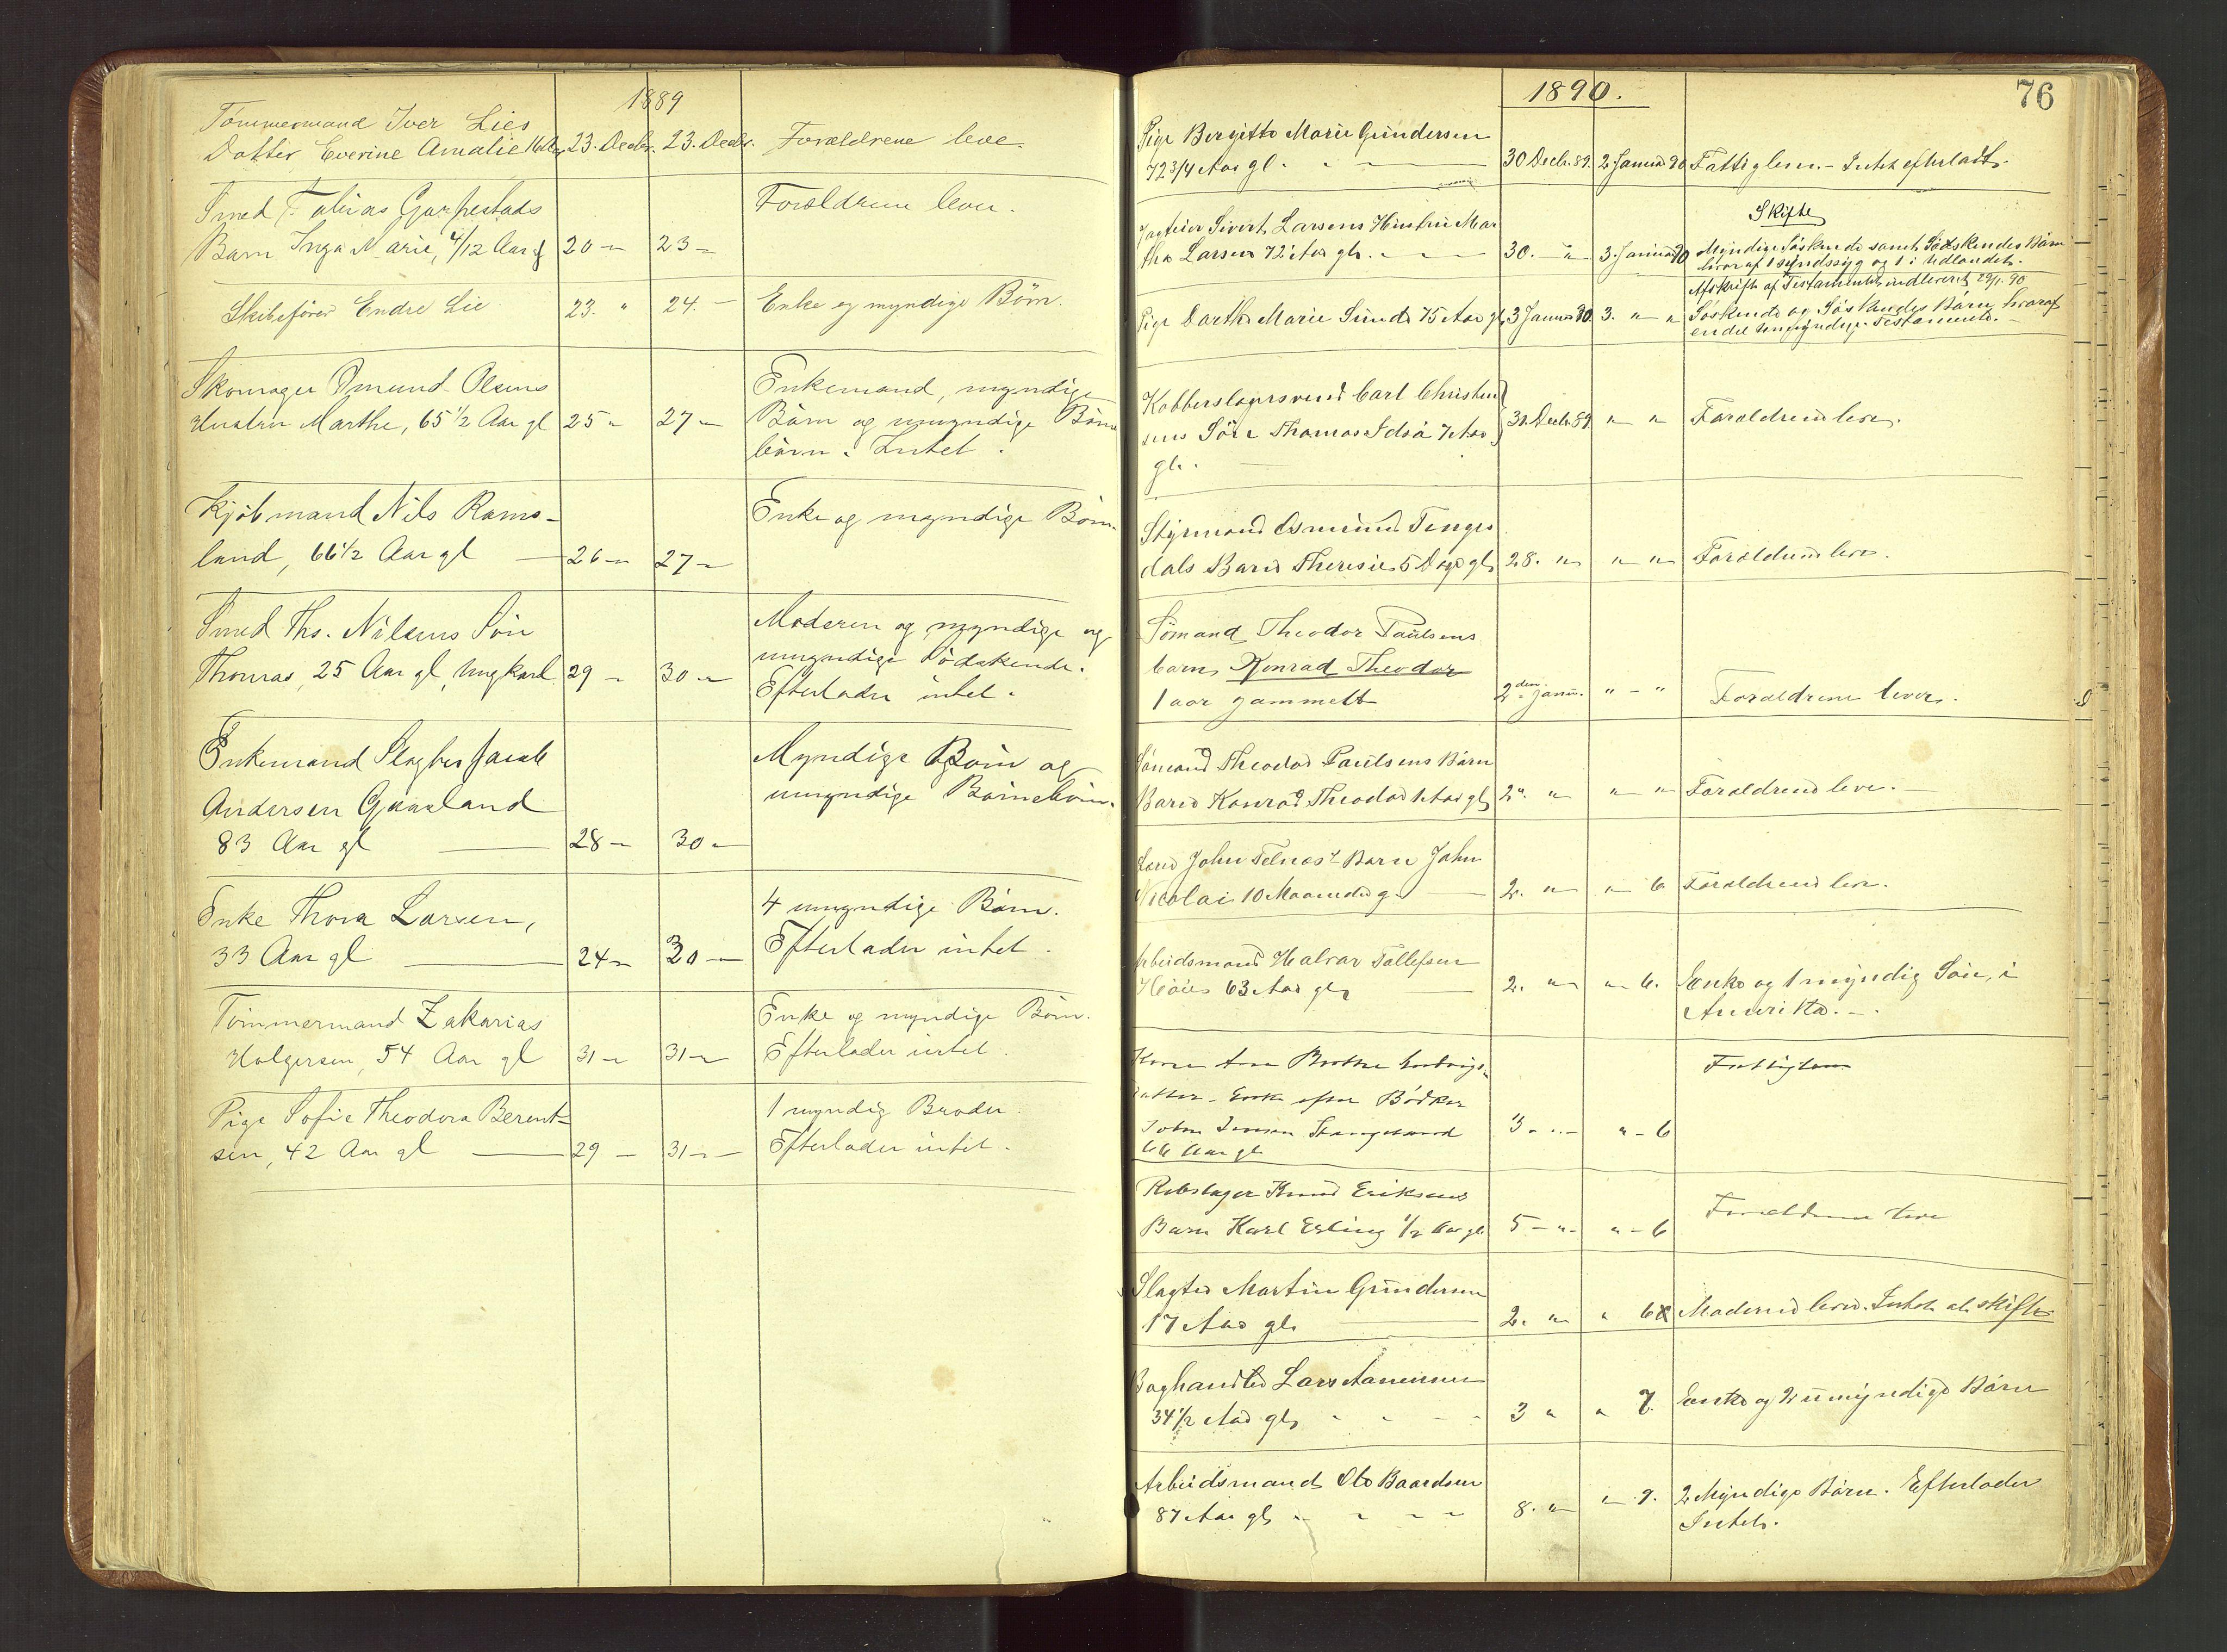 1889
Tömmermand Iver Lies
Datter Everine Amalie 23. Decbr. 23. Decbr. Forældrene leve.
Smed Tobias Garpestads Forældrene lever.
Barn Inga Marie, 4/12 Aar gl 20 " 23 "
Skibsfører Endre Lie 23. " 24. " Enke og myndige Börn.
Skomager Omund Olsens Enkemand, myndige
Hustru Marthe, 65 1/2 Aar gl 25 " 27 " Börn og umyndige Börne
börn. Intet.
Kjöbmand Nils Rams- Enke og myndige Börn.
land, 66 1/2 Aar gl 26 " 27 "
Smed Ths. Nilsens Sön Moderen og myndige og
Thomas, 25 Aar gl, ungkarl 29 " 30 " umyndige Södskende.
Efterlader intet.
Enkemand Slagter Jacob Myndige Börn og
Andersen Gausland umyndige Börnebörn.
83 Aar gl 28 " 30 "
Enke Thora Larsen, 4 umyndige Börn.
33 Aar gl 24 " 30 " Efterlader intet.
Tömmermand Zakarias Enke og myndige Börn.
Holgersen, 54 Aar gl 31 " 31 " Efterlader intet.
Pige Sofie Theodora Berent- 1 myndig Broder.
sen, 42 Aar gl 29 " 31 " Efterlader intet.
1890.
76
Pige Bergitte Marie Gundersen
72 3/4 Aar gl. 30 Decbr. 89. 2 Januar 90 Fattiglem. - Intet efterladt.
Skifte
Sivert Larsens Hustru Mar
tha Larsen 72 Aar gl. 30. " 3. Januar 90 Myndige Söskende samt Södskendes Börn
hvoraf 1 sindssyg og 1 i Udlandet.
Afskrift af Testamentet indleveret 29/1. 90
Pige Marie Sunde 75 Aar gl. 3 Januar 90. 3. " " Söskende og Söskendes Börn, hvoraf
endel umyndige. Testamente.
Kobberslagersvend Carl Christen
sens Sön Thomas Idsö 7 Aar 31 Decbr 89 " " Forældrene leve.
gl.
Styrmand Asmund Tenges
dals Barn Theresie 5 Dage gl. 28. " " " Forældrene leve.
Sömand Theodor Paulsens
barn, Konrad Theodor
1 aar gammelt 2den Janu. " - " Forældrene lever.
Sömand Theodor Paulsens Börn
Barn Konrad Theodor 1 Aar gl. 2. " " " Forældrene leve.
John Telnes' Barn John
Nicolai 10 Maaneder g. 2. " " 6 Forældrene leve.
Arbeidsmand Halvor Tollefsen
63 Aar gl. 2. " " 6. Enke og 1 myndig Sön, i
Amerika.
Kone Ane Berthe Ludvigs- Fattiglem
datter - Enke efter Bödker
John Jensen Stangeland 3 - " " - 6
66 Aar gl
Rebslager Knud Eriksens
Barn Karl Erling 1/2 Aar gl. 5 - " " - 6 Forældrene leve
Slagter Martin Gundersen
17 Aar gl. 2. " " 6 Moderen lever. Intet at skifte
Boghandler Lars
34 1/2 Aar gl. 3 " " 7. Enke og 2 umyndige Börn
Arbeidsmand Ole Baardsen
87 Aar gl. 8. " " 9. 2 Myndige Börn. Efterlader
Intet.